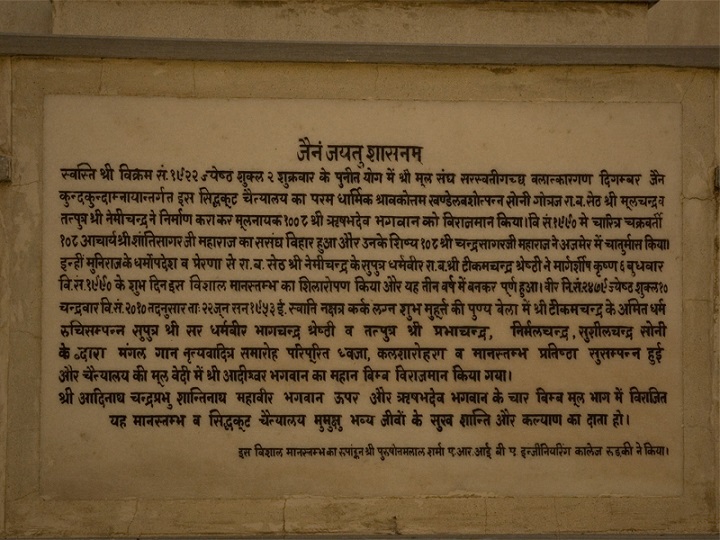 जैनं जयतु शासनम्
स्वस्ति श्री विक्रम सं.१९२२ ज्येष्ठ शुक्ल २ शुक्रवार के पुनीत योग में श्री मूल संघ सरस्वतीगच्छ बलात्कारगण दिगम्बर जैन
कुन्दकुन्दाम्नायान्तर्गत इस सिद्धकूट चैत्यालय का परम धार्मिक श्रावकोत्तम खण्डेलवंशोत्पन्न सोनी गोत्रज रा.ब.सेठ श्री मूलचन्द्र व
तत्पुत्र श्री नेमीचन्द्र ने निर्माण करा कर मूलनायक १००८ श्री ऋषभदेव भगवान को विराजमान किया।वि सं.१९९० मे चारित्र चक्रवर्ती
१०८ आचार्य श्री शांतिसागरजी महाराज का ससंघ विहार हुआ और उनके शिष्य १०८ श्री चन्द्रसागरजी महाराज ने अजमेर में चातुर्मास किया।
इन्हीं मुनिराज के धर्मोपदेश व प्रेरणा से रा.ब. सेठ श्री नेमीचन्द्र के सुपुत्र धर्मवीर रा.ब.श्री टीकमचन्द्र श्रेष्ठी ने मार्गशीर्ष कृष्ण ६ बुधवार
वि.सं.१९९० के शुभ दिन इस विशाल मानस्तम्भ का शिलारोपण किया और यह तीन वर्ष में बनकर पूर्ण हुआ। वीर नि.सं.२४७९ ज्येष्ठ शुक्ल १०
चन्द्रवार वि.सं.२०१० तदनुसार ताः २२ जून सन १९५३ ई. स्वाति नक्षत्र कर्क लग्न शुभ मुहूर्त्त की पुण्य बेला में श्री टीकमचन्द्र के अमित धर्म
रुचिसम्पन्न सुपुत्र श्री सर धर्मवीर भागचन्द्र श्रेष्ठी व तत्पुत्र श्री प्रभाचन्द्र, निर्मलचन्द्र, सुशीलचन्द्र सोनी
के द्वारा मंगल गान नृत्यवादित्र समारोह परिपूरित ध्वजा, कलशारोहण व मानस्तम्भ प्रतिष्ठा सुसम्पन्न हुई
और चैत्यालय की मूल वेदी में श्री आदीश्वर भगवान का महान बिम्ब विराजमान किया गया।
श्री आदिनाथ चन्द्रप्रभु शान्तिनाथ महावीर भगवान ऊपर और ऋषभदेव भगवान के चार बिम्ब मूल भाग में विराजित
यह मानस्तम्भ व सिद्धकूट चैत्यालय मुमुक्षु भव्य जीवों के सुख शान्ति और कल्याण का दाता हो।
इस विशाल मानस्तम्भ का रूपांङ्कन श्री पुरुषोतमलाल शर्मा ए.आर.आई बी ए. इन्जीनियरिंग कालेज रुड़की ने किया।